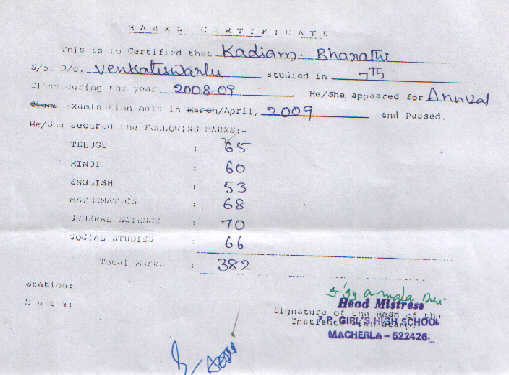 MARKS CERTIFICATE
This is to Certified that Kadiam. Bharathi
S/o. D/o. Venkateswarlu studied in 7th
Class during the year 2008.09 He/She appeared for Annual
Examination held in March/April, 2009 and Passed.
He/She secured the FOLLOWING MARKS:-
TELUGU : 65
HINDI : 60
ENGLISH : 53
MATHEMATICS : 68
GENERAL SCIENCE : 70
SOCIAL STUDIES : 66
Total Marks : 382
Station:
Date:
Head Mistress
Signature of the Head of the
Institution
Z.P. GIRL'S HIGH SCHOOL
MACHERLA - 522426.